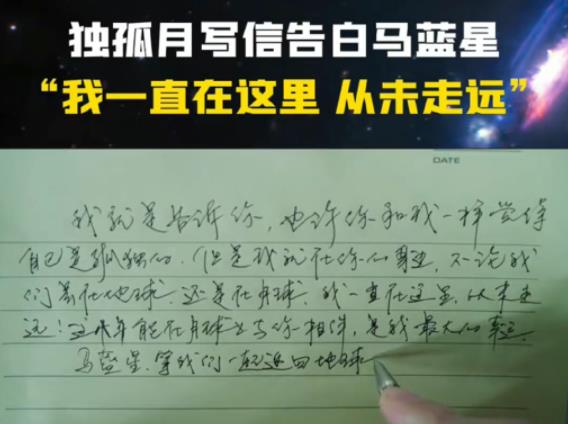 独孤月写信告白马蓝星
“我一直在这里 从未走远”
DATE
我就是告诉你,也许你和我一样觉得
自己是孤独的.但是我就在你的身边,不论我
们是在地球.还是在月球.我一直在这里,从未走
远!这些年能在月球上与你相伴,是我最大的幸运.
马蓝星.等我们一起返回地球